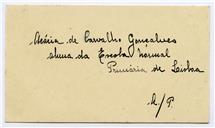 Maria de Carvalho Gonçalves
aluna da Escola normal
Primária de Lisboa